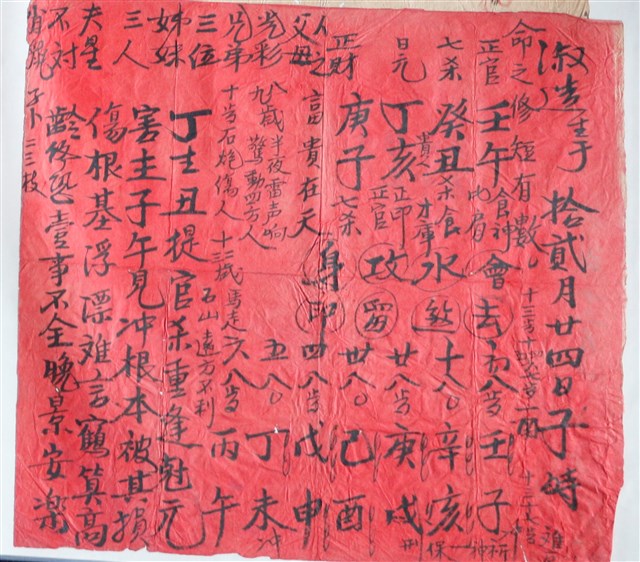 淑造生于拾貳月廿四日子時
命之修短有數
正官 壬午 食神 比肩 會去 初八歲 壬子
七杀 癸丑 杀食 才庫 水 十八 辛亥
日元 丁亥 貴人 正印 正官 攻 廿八歲 庚戌 刑
正財 庚子 七杀 卅八 己酉
人之富貴在天 身印 四八歲 戊申
父母光彩 八九歲半夜雷声响驚動四方人 五八 丁未 冲
兄弟三位 十歲石炮傷人 石山遠方不利 六八歲 丙午
姊妹三人 丁主丑提官杀重逢冠元
害主子午見冲根本被其損
夫星不對 傷根基浮漂难言鶴算高
齡终恐壹事不全晚景安樂
子小二三枝